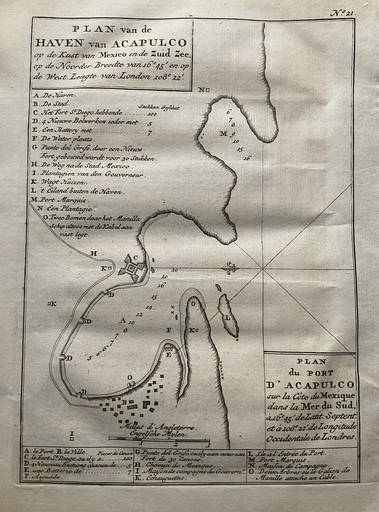 N.º 21.
PLAN van de
HAVEN van ACAPULCO
op de Kust van Mexico in de Zuid Zee,
op de Noorder Breedte van 16º 45' en op
de West Lengte van London 108º 22'.
A. De Haven.
B. De Stad.
Stukken Geschut
C. Het Fort St. Diego hebbende 100
D. 4 Nieuwe Bolwerken ieder met 5
E. Een Battery met 7
F. De Water plaats
G. Punto del Grifo, daar een Nieuw
Fort gebouwd wordt voor 30 Stukken
H. De Weg na de Stad Mexico
I. Plantagien van den Gouverneur
K. Wagt Huizen
L. 't Eiland buiten de Haven
M. Port Marquis
N. Een Plantagie
O. Twee Bomen daar het Manille
Schip altoos met de Kabel aan
vast legt
N
M
H
C
K
D
A
F
G
K
L
E
O
B
I
Milles d'Angleterre
Engelsche Mylen
PLAN
du PORT
D'ACAPULCO
sur la Côte du Mexique
dans la Mer du Sud,
à 16º 45' de Latit. Septent.
et à 108º 22' de Longitude
Occidentale de Londres.
A. le Port. B. la Ville. Pieces de Canon
C. le Fort St. Diego ou il y a 100
D. 4 Nouveau Bastions chacun de 5
E. une Batterie de 7
F. Aiguade
G. Punto del Grifo
Fort de 30 Canons
H. Chemin de Mexique
I. Maison de campagne du Gouvern.
K. Echauguettes
L. Ile al'Entrée du Port.
M. Port Marquis
N. Maison de Campagne
O. Deux Arbres ou le Galion de
Manille attache un Cable.